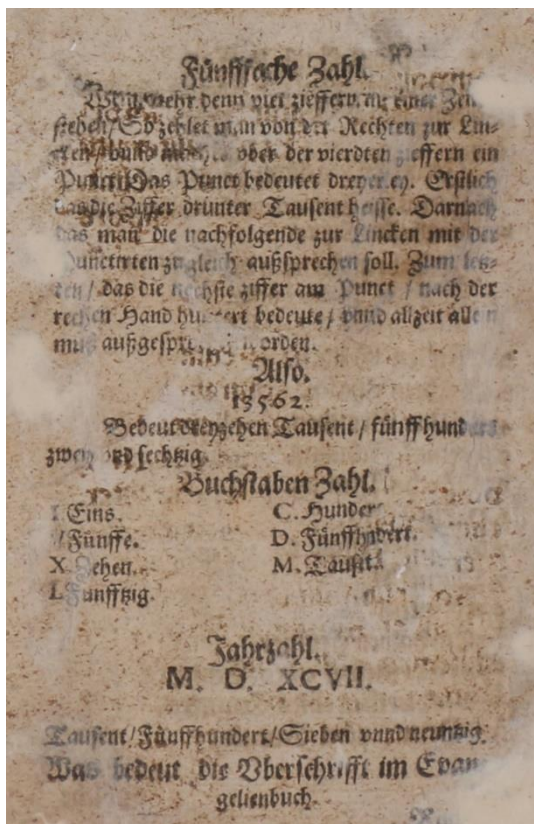 Fünfffache Zahl.
mehr denn vier zieffern in einer
stehen/ So zehlet man von der Rechten zur Lin-
vnd vber der vierdten zieffern ein
Punct/ Das Punct bedeutet dreyerley. Erstlich
das die Ziffer drunter Tausent heisse. Darnach
das man die nachfolgende zur Lincken mit der
Punctirten zugleich außsprechen soll. Zum letz-
ten/ das die nechste ziffer am Punct / nach der
rechten Hand hundert bedeute/ vnnd allzeit allein
muß außgesprochen worden.
Also.
13562.
Bedeut dreyzehen Tausent / fünffhundert
zwey vnd sechtzig.
Buchstaben Zahl.
I Eins. C. Hundert
V Fünffe. D. Fünffhundert.
X Zehen. M. Tausent
L Funfftzig
Jahrzahl.
M. D. XCVII.
Tausent/ Fünffhundert/ Sieben vnnd neuntzig.
Was bedeut die Vberschrifft im Evan-
gelienbuch.